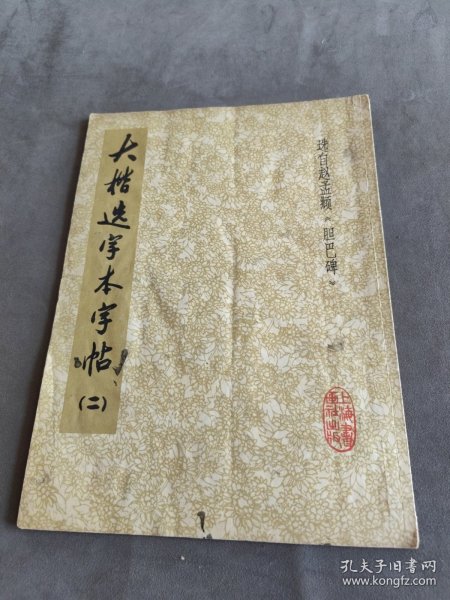 大楷选字本字帖
（二）
选自赵孟頫《胆巴碑》
上海书
画社出版
孔夫子旧书网
www.kongfz.com